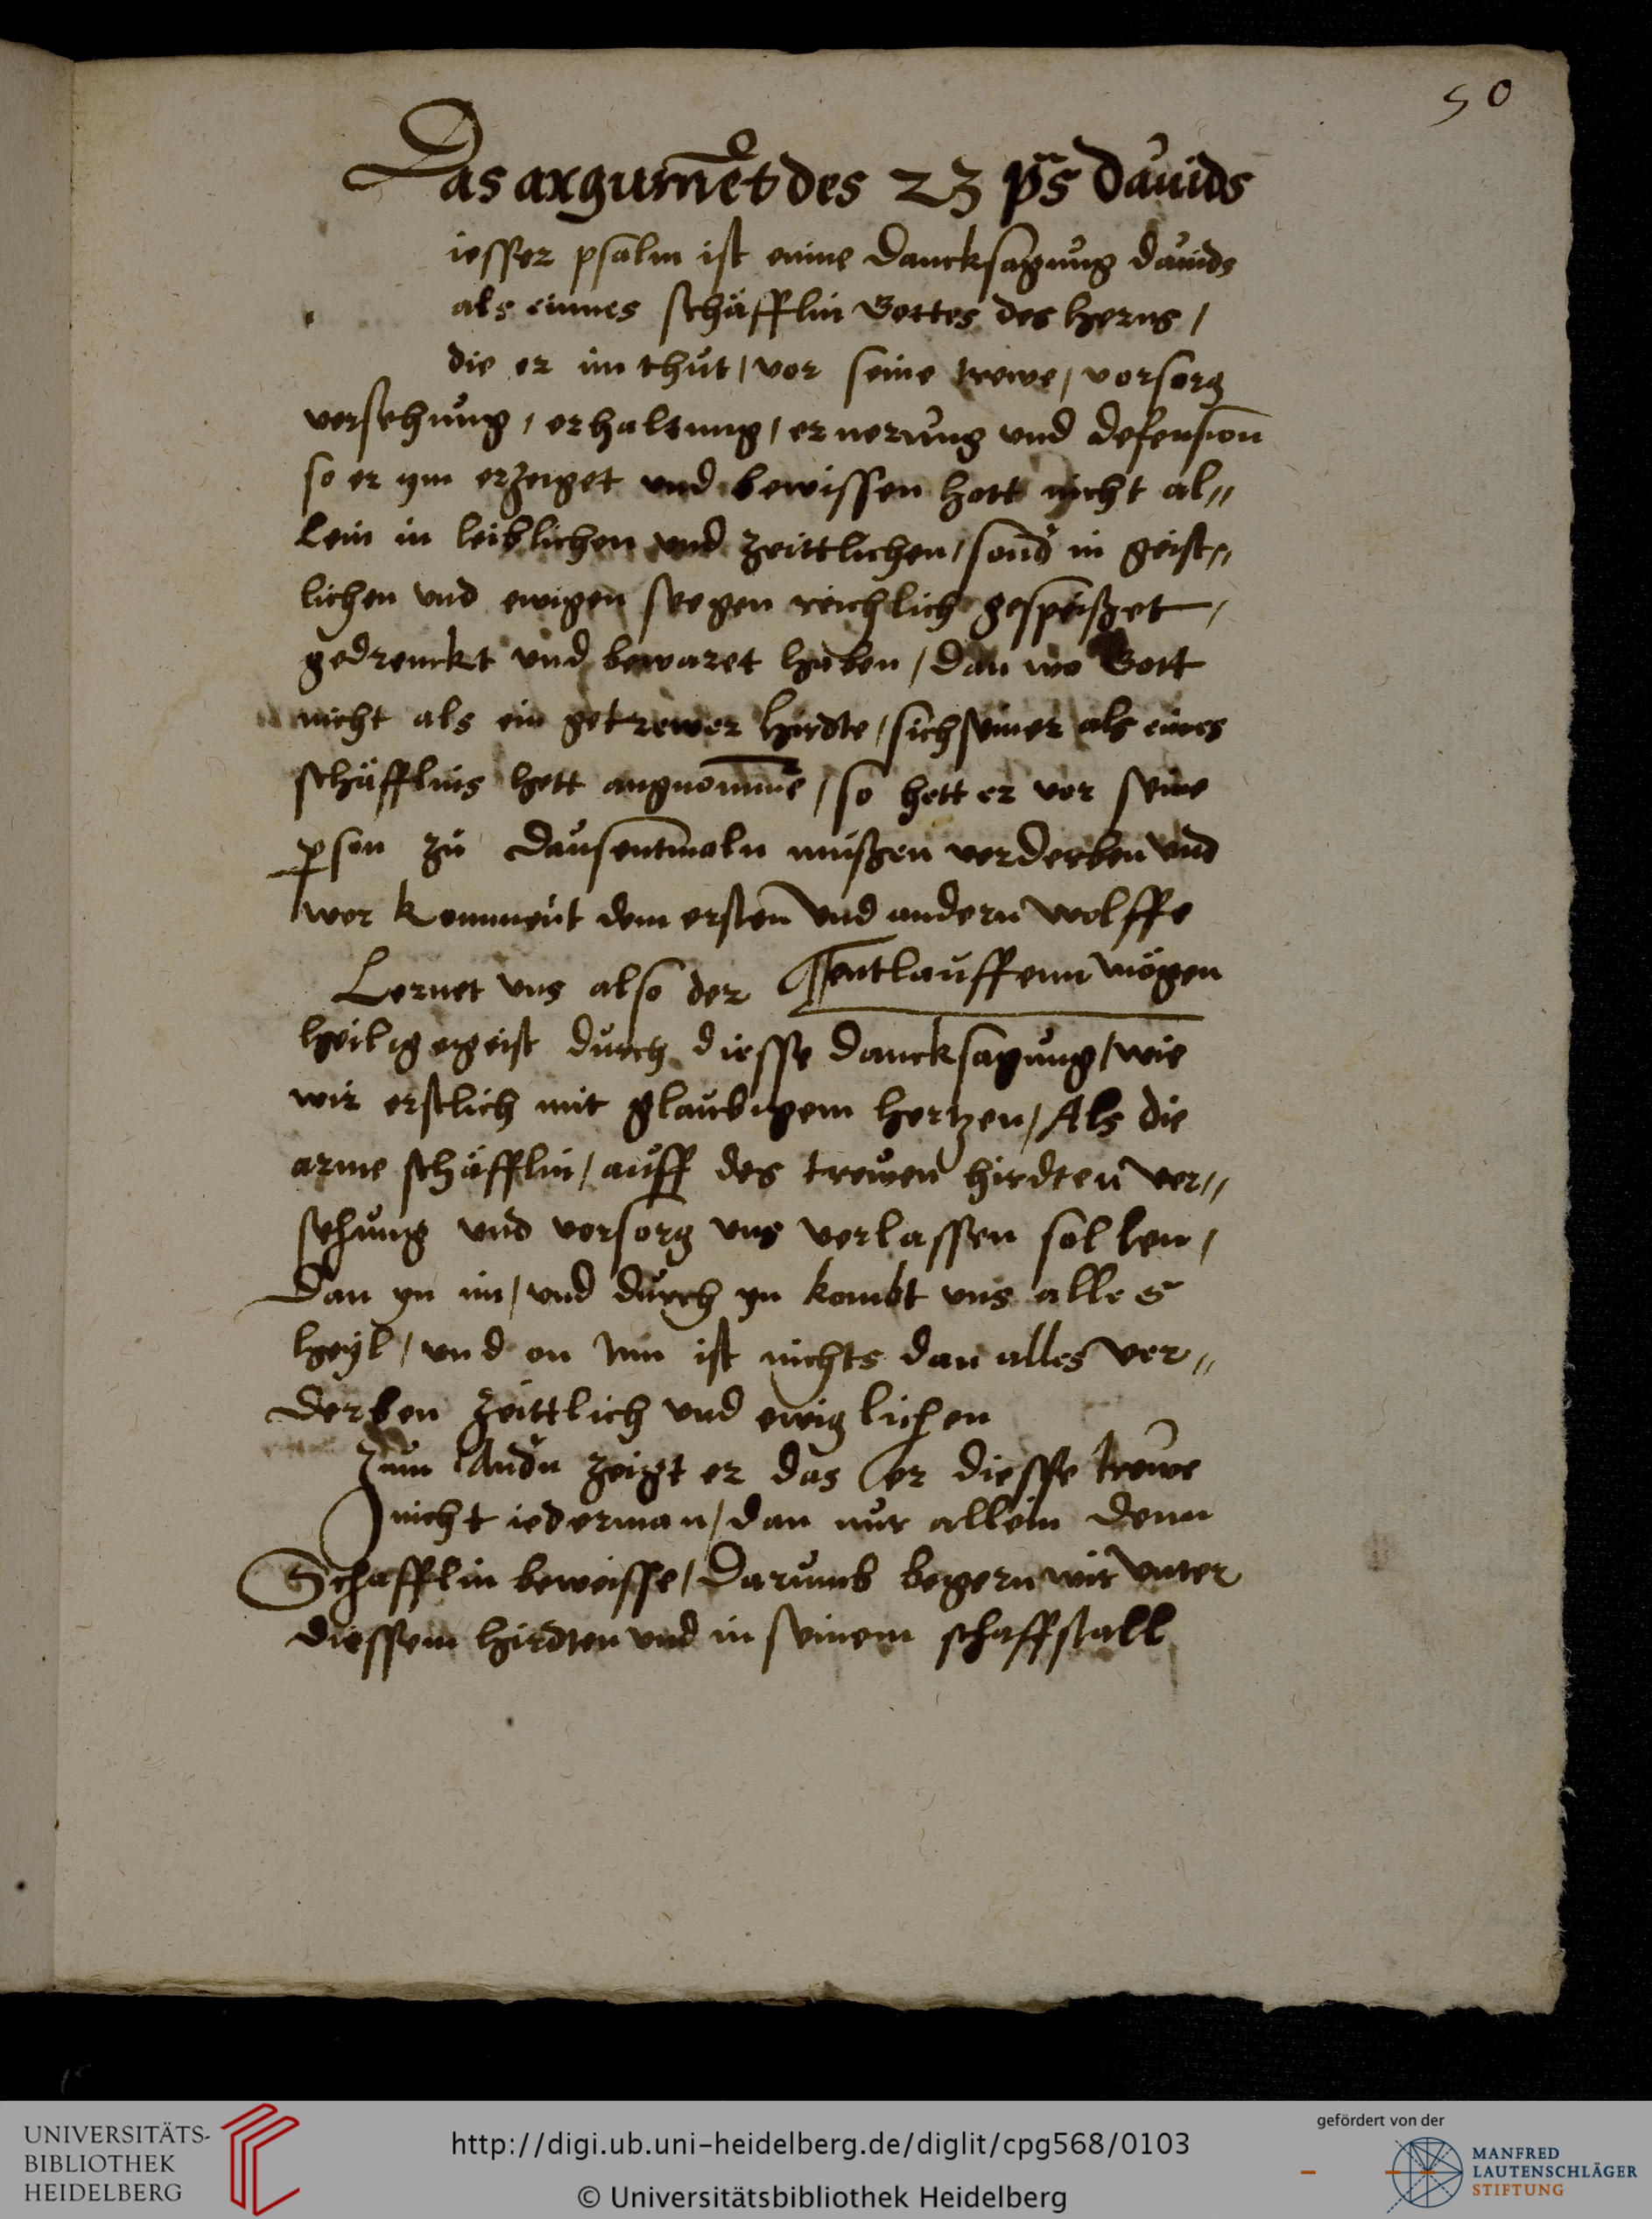 50
Das argumēt des 23 ps̄ dauids
iesser psalm ist einne dancksagung dauids
als einnes schäfflin Gottes des herns /
die er im thut / vor seine trewe / vorsorg
versehung / erhaltung / ernerung vnd defension
so er ym erzeiget vnd bewissen hett nicht al„
lein in leiblichen vnd zeittlichen / sond in geist„
lichen vnd ewigen seegen reichlich gespeißzet /
gedrenckt vnd bewaret haben / dan wo Gott
nicht als ein getrewer hirdte / sich seiner als eines
schäfflins hett angnommē / so hett er vor seine
pson zu dausentmaln mußzen verderben vnd
wer kommeut dem ersten vnd andern wolffe
entlauffenn mögen
Lernet vns also der
heilig ergeist durch diesse dancksagung / wie
wir erstlich mit glaubigem hertzen / Als die
arme schäfflin / auff des trewen hirdten ver„
sehung vnd vorsorg vns verlassen sollen /
Dan yn im / vnd durch yn kombt vns alles
heyl / vnd on inn ist nichts dan alles ver„
derben zeittlich vnd ewiglichen
Zum Andn zeigt er das er diesse trewe
nicht iederman / dan nur allein denn
Schafflin beweisse / Darumb begern wir vnter
diessem hirdten vnd in seinem schaffstall
UNIVERSITÄTS-
BIBLIOTHEK
HEIDELBERG
http://digi.ub.uni-heidelberg.de/diglit/cpg568/0103
© Universitätsbibliothek Heidelberg
gefördert von der
MANFRED
LAUTENSCHLÄGER
STIFTUNG